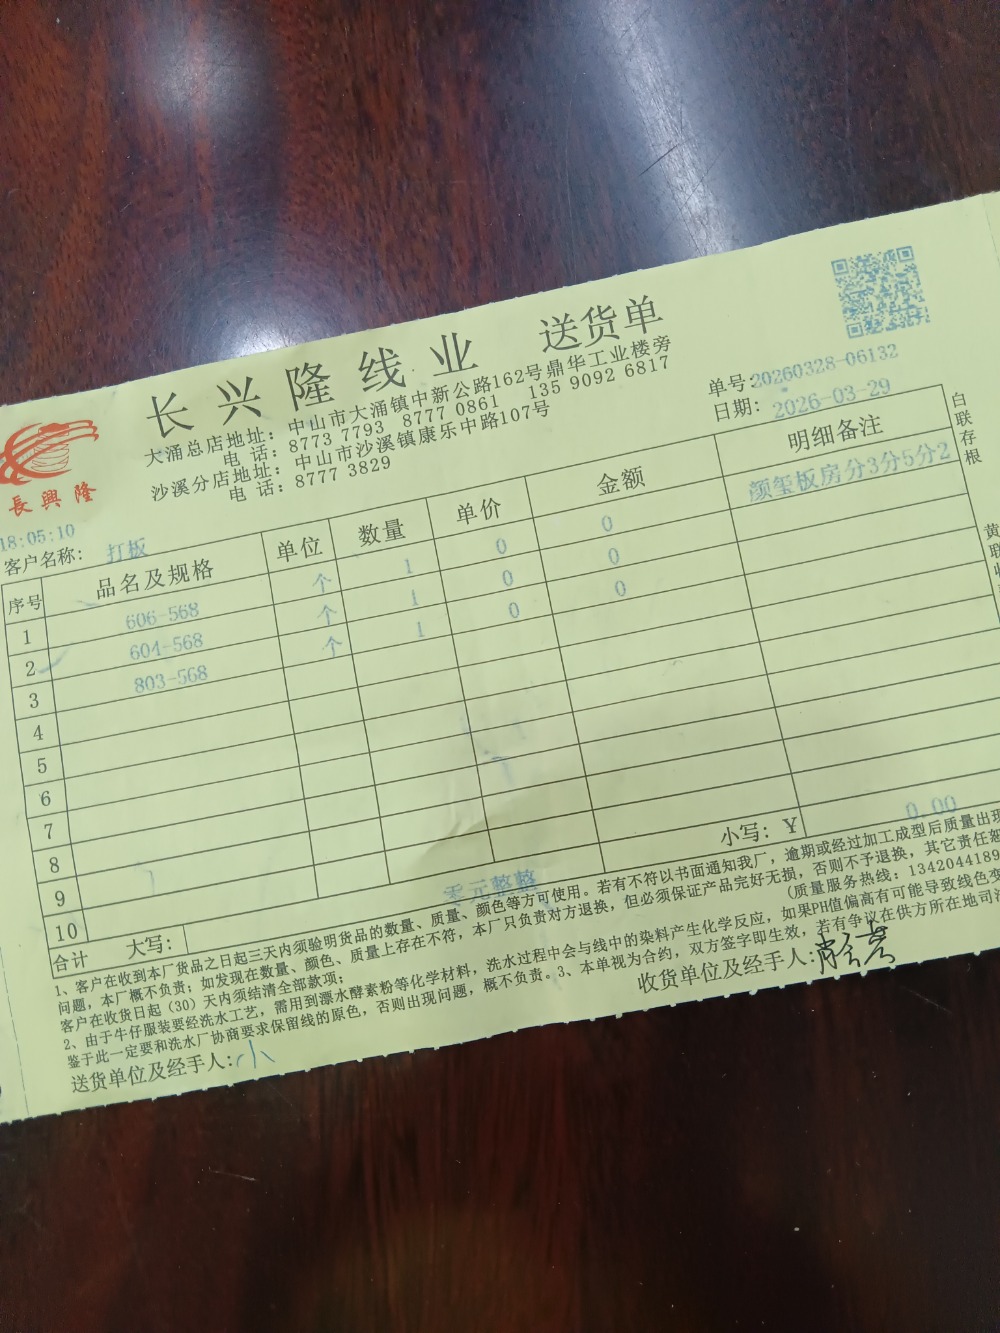 长兴隆线业 送货单
大涌总店地址：中山市大涌镇中新公路162号鼎华工业楼旁
电 话：8773 7793 8777 0861 135 9092 6817
沙溪分店地址：中山市沙溪镇康乐中路107号
电 话：8777 3829
長興隆
单号:20260328-06132
日期: 2026-03-29
18:05:10
客户名称: 打板
序号 品名及规格 单位 数量 单价 金额 明细备注
1 606-568 个 1 0 0 颜玺板房分3分5分2
2 604-568 个 1 0 0
3 803-568 个 1 0 0
4
5
6
7
8
9
10
合计 大写: 零元整整 小写: ¥ 0.00
1、客户在收到本厂货品之日起三天内须验明货品的数量、质量、颜色等方可使用。若有不符以书面通知我厂，逾期或经过加工成型后质量出现
问题，本厂概不负责；如发现在数量、颜色、质量上存在不符，本厂只负责对方退换，但必须保证产品完好无损，否则不予退换，其它责任恕
客户在收货日起（30）天内须结清全部款项； (质量服务热线: 1342044189
2、由于牛仔服装要经洗水工艺，需用到漂水酵素粉等化学材料，洗水过程中会与线中的染料产生化学反应，如果PH值偏高有可能导致线色变
鉴于此一定要和洗水厂协商要求保留线的原色，否则出现问题，概不负责。3、本单视为合约，双方签字即生效，若有争议在供方所在地司法
送货单位及经手人: 小
收货单位及经手人:
白联存根
黄联